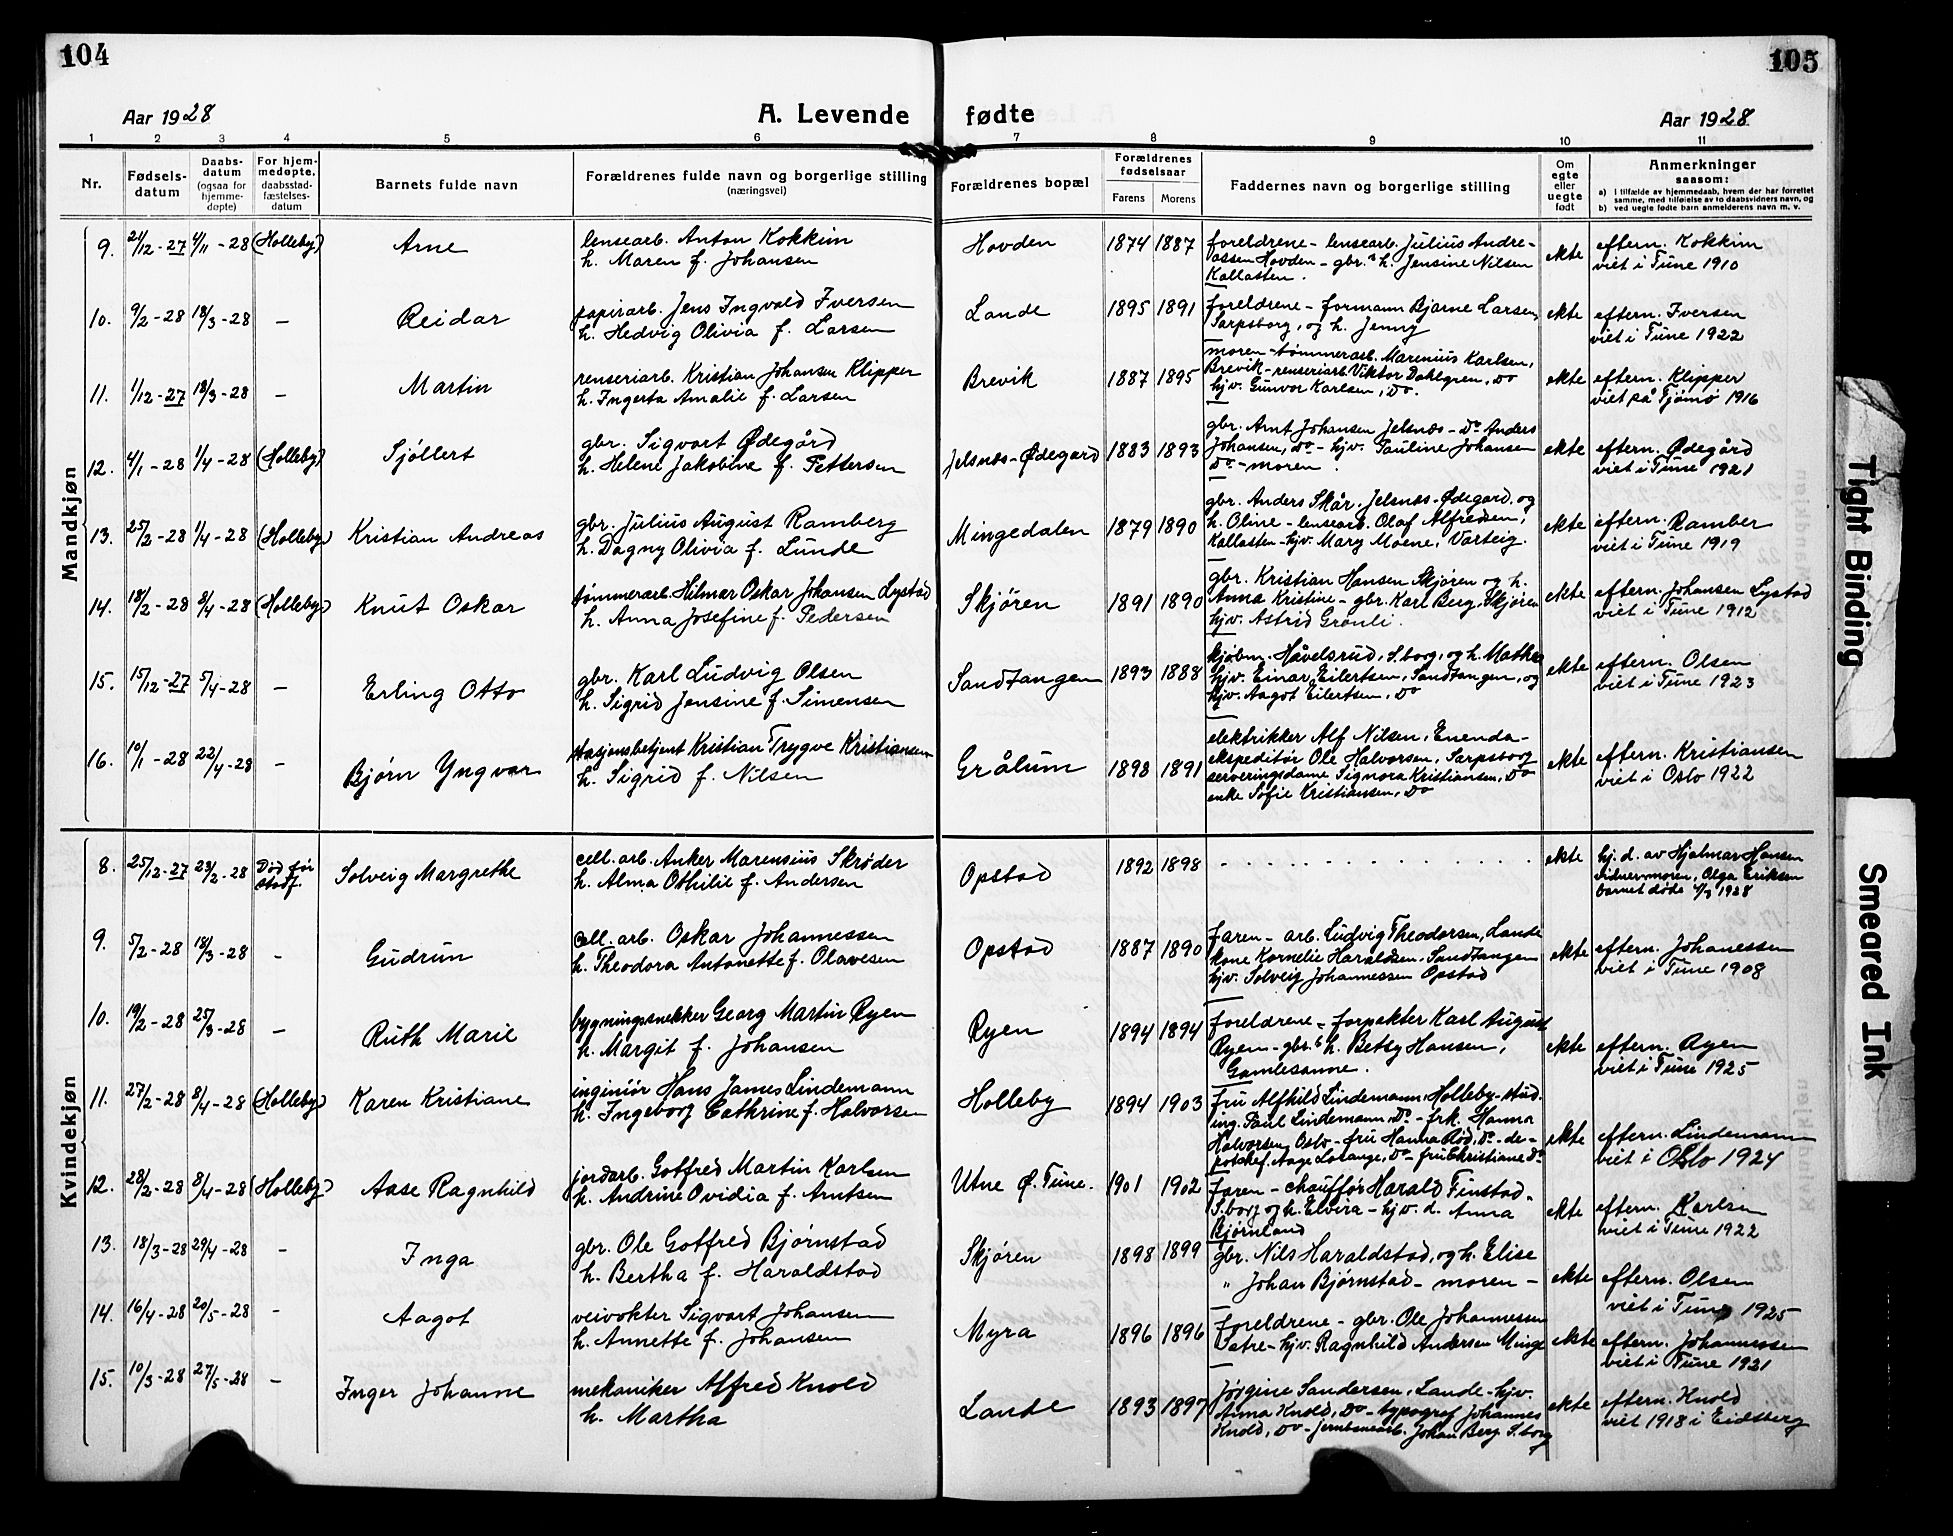 104
105
Aar 1928
A. Levende fødte
Aar 1928
1 2 3 4 5 6 7 8 9 10 11
Nr.
Fødsels-
datum
Daabs-
datum
(ogsaa for
hjemme-
døpte)
For hjem-
medøpte.
daabsstad-
fæstelses-
datum
Barnets fulde navn
Forældrenes fulde navn og borgerlige stilling
(næringsvei)
Forældrenes bopæl
Forældrenes
fødselsaar
Farens
Morens
Faddernes navn og borgerlige stilling
Om
egte
eller
uegte
født
Anmerkninger
saasom:
a) I tilfælde av hjemmedaab, hvem der har forrettet
samme, med tilføielse av to daabsvidners navn, og
b) ved uegte fødte barn anmelderens navn m. v.
Mandkjøn
9. 21/12-27 9/11-28 (Holleby) Arne
lensearb. Anton Kokkim
h. Maren f. Johansen
Hovden 1874 1887
foreldrene - lensearb. Julius Andre-
assen Hovden - gbr. h. Jensine Nilsen
Kallasten.
ekte
eftern. Kokkim
viet i Tune 1910
10. 9/2-28 18/3-28 - Reidar
papirarb. Jens Ingvald Iversen
h. Hedvig Olivia f. Larsen
Lande 1895 1891
foreldrene - formann Bjarne Larsen,
Sarpsborg, og h. Jenny
ekte
eftern. Iversen
viet i Tune 1922
11. 1/12-27 18/3-28 - Martin
renseriarb. Kristian Johansen Klipper
h. Ingerta Amalie f. Larsen
Brevik 1887 1895
moren - tømmerarb. Marenius Karlsen,
Brevik - renseriarb Viktor Dahlgren, Do
hjv. Gunvor Karlsen, Do.
ekte
eftern. Klipper
viet på Tjømø 1916
12. 4/1-28 1/4-28 (Holleby) Sjøllert
gbr. Sigvart Ødegård
h. Helene Jakobine f. Pettersen
Jelsnæs-Ødegard 1883 1893
gbr. Arnt Johansen Jelsnæs - Do Anders
Johansen, Do - hjv. Pauline Johansen
Do - moren.
ekte
eftern. Ødegård
viet i Tune 1921
13. 25/2-28 1/4-28 (Holleby) Kristian Andreas
gbr. Julius August Ramberg
h. Dagny Olivia f. Lunde
Mingedalen 1879 1890
gbr. Anders Skår, Jelsnæs-Ødegard, og
h. Oline - lensearb. Olaf Alfredsen,
Kallasten - hjv. Mary Moene, Varteig.
ekte
eftern. Ramber
viet i Tune 1919
14. 18/2-28 8/4-28 (Holleby) Knut Oskar
tømmerarb. Hilmar Oskar Johansen Lystad
h. Anna Josefine f. Pedersen
Skjøren 1891 1890
gbr. Kristian Hansen Skjøren og h.
Anna Kristine - gbr. Karl Berg, Skjøren
hjv. Astrid Grønli.
ekte
eftern. Johansen Lystad
viet i Tune 1912
15. 15/12-27 5/4-28 - Erling Otto
gbr. Karl Ludvig Olsen
h. Sigrid Jensine f. Simensen
Sandtangen 1893 1888
skjøbm. Håvelsrud, S.borg, og h. Mathea
hjv. Einar Eilertsen, Sandtangen, og
hjv. Aagot Eilertsen, Do
ekte
eftern. Olsen
viet i Tune 1923
16. 10/1-28 22/4-28 - Bjørn Yngvar
stasjonsbetjent Kristian Trygve Kristiansen
h. Sigrid f. Nilsen
Grålum 1898 1891
elektrikker Alf Nilsen, Enenda -
ekspeditør Ole Halvorsen, Sarpsborg
serveringsdame Signora Kristiansen, Do
enke Sofie Kristiansen, Do
ekte
eftern. Kristiansen
viet i Oslo 1922
Kvindekjøn
8. 25/12-27 23/2-28 Død før
stadf. Solveig Margrethe
cell. arb. Anker Marensius Skrøder
h. Alma Othilie f. Andersen
Opstad 1892 1898
ekte
hj. d. av Hjalmar Hansen
vidner moren, Olga Eriksen
barnet døde 4/3 1928
9. 5/2-28 18/3-28 - Gudrun
cell. arb. Oskar Johannessen
h. Theodora Antonette f. Olavesen
Opstad 1887 1890
faren - arb. Ludvig Theodorsen, Lande
kone Kornelie Haraldsen, Sandtangen
hjv. Solveig Johannessen Opstad
ekte
eftern. Johanessen
viet i Tune 1908
10. 19/2-28 25/3-28 - Ruth Marie
bygningssnekker Georg Martin Ryen
h. Margit f. Johansen
Ryen 1894 1894
foreldrene - forpakter Karl August
Ryen - gbr. h. Betsy Hansen,
Gamlesanne.
ekte
eftern. Ryen
viet i Tune 1925
11. 27/2-28 8/4-28 (Holleby) Karen Kristiane
ingeniør Hans James Lindemann
h. Ingeborg Cathrine f. Halvorsen
Holleby 1894 1903
fru Alfhild Lindemann, Holleby - stud.
ing. Paul Lindemann, Do - frk. Hanna
Halvorsen, Oslo - fru Hanna Rød, Do - de-
potchef Aage Lorange, Do - fru Christiane Do
ekte
eftern. Lindemann
viet i Oslo 1924
12. 28/2-28 8/4-28 (Holleby) Aase Ragnhild
jordarb. Gotfred Martin Karlsen
h. Andrine Ovidia f. Arntsen
Utne Ø. Tune. 1901 1902
faren - chauffør Harald Finstad,
S.borg og h. Elvira - hjv. d. Anna
Bjørnland
ekte
eftern. Karlsen
viet i Tune 1922
13. 18/3-28 29/4-28 - Inga
gbr. Ole Gotfred Bjørnstad
h. Bertha f. Haraldstad
Skjøren 1898 1899
gbr. Nils Haraldstad, og h. Elise
" Johan Bjørnstad - moren -
ekte
eftern. Olsen
viet i Tune 1925
14. 16/4-28 20/5-28 - Aagot
veivokter Sigvart Johansen
h. Annette f. Johansen
Myra 1896 1896
foreldrene - gbr. Ole Johannessen
Vatre - hjv. Ragnhild Andersen Minge
ekte
eftern. Johannessen
viet i Tune 1921
15. 10/3-28 27/5-28 - Inger Johanne
mekaniker Alfred Knold
h. Martha
Lande 1893 1897
Jørgine Sandersen, Lande - hjv.
Anna Knold, Do - typograf Johannes
Knold, Do - jernbanearb. Johan Berg S.borg
ekte
eftern. Knold
viet 1918 i Eidsberg
Tight Binding
Smeared Ink